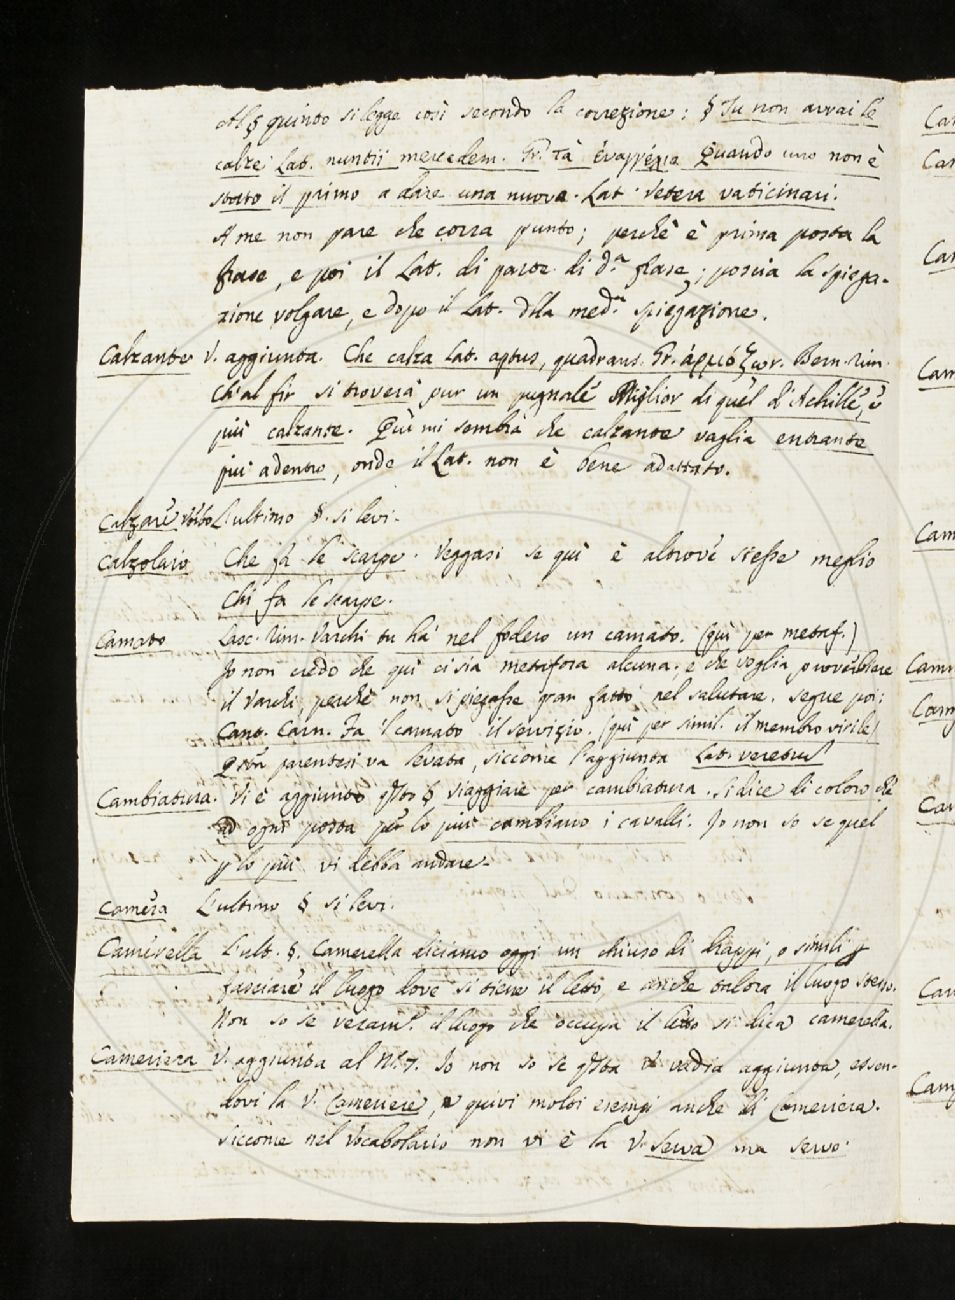 Al § quinto si legge così secondo la correzione: § Tu non avrai le
calze Lat. nuntii mercedem. Gr. τὰ ἐυαγγέλια Quando uno non è
stato il primo a dare una nuova. Lat. vetera vaticinari.
A me non pare che corra punto; perchè è prima posta la
frase, e poi il Lat. di parte di d.ª frase; poscia la spiega-
zione volgare, e dopo il Lat. dlla med.ª spiegazione.
Calzante V. aggiunta. Che calza Lat. aptus, quadrans. Gr. ἁρμόζων. Bern. rim.
Ch'al fin si troverà pur un pugnale Miglior di quel d'Achille, e
più calzante. Quì mi sembra che calzante vaglia entrante
più adentro, onde il Lat. non è bene adattato.
Calzare L'ultimo §. si levi.
Calzolaio Che fa le scarpe. Veggasi se quì è altrove stesse meglio
Chi fa le scarpe.
Camato Lasc. Rim. Varchi tu ha' nel fodero un camato. (quì per metaf.)
Io non credo che quì ci sia metafora alcuna; e che voglia proverbiare
il Varchi, perchè non si piegasse gran fatto nel salutare. segue poi:
Cant. Carn. Fa 'l camato il servizio. (quì per simil. il membro virile)
Qsta parentesi va levata, siccome l'aggiunta Lat. veretrum
Cambiatura. Vi è aggiunto qsto § viaggiare per cambiatura. si dice di coloro chè
ad ogni posta per lo più cambiano i cavalli. Io non so se quel
p lo più vi debba andare.
Camera L'ultimo § si levi.
Camerella L'ult. §. Camerella diciamo oggi un chiuso di drappi, o simili p
fasciare il luogo dove si tiene il letto, e anche talora il luogo stesso.
Non so se veram.e il luogo che occupa il letto si dica camerella.
Cameriera V. aggiunta al N.º 7. Io non so se qsta vadia aggiunta, essen-
dovi la V. Cameriere, e quivi molti esempi anche di Cameriera.
siccome nel Vocabolario non vi è la V. Serva ma servo.